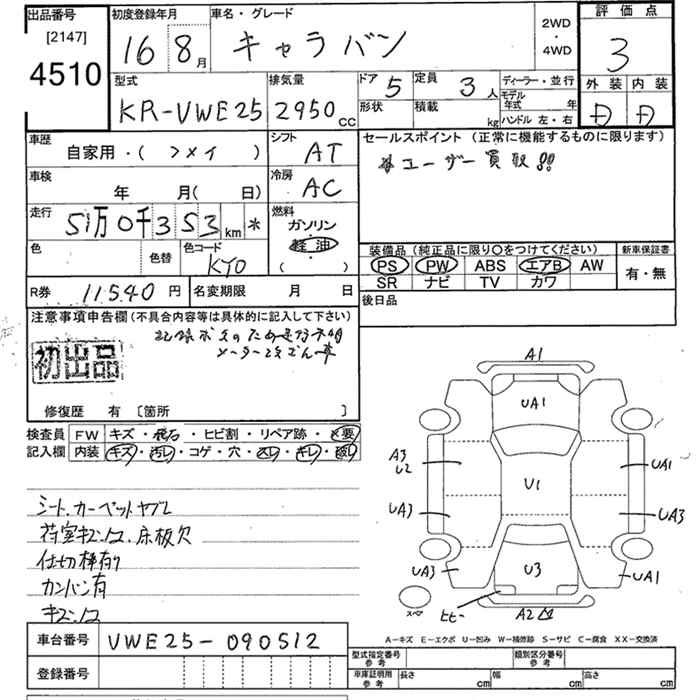 出品番号
[2147]
4510
初度登録年月
16 8月
車名・グレード
キャラバン
2WD
・
4WD
評価点
3
外装 内装
D D
型式
KR-VWE25
排気量
2950cc
ドア 5
定員 3人
ディーラー・並行
形状
積載 kg
モデル年式 年
ハンドル 左・右
車歴
自家用・( )
シフト
AT
車検
年 月( 日)
冷房
AC
走行
51万0千353km *
燃料
ガソリン
・
軽油
( )
色
色替
色コード
KY0
セールスポイント (正常に機能するものに限ります)
*ユーザー買取!!
装備品(純正品に限り〇をつけてください)
新車保証書
PS PW ABS エアB AW
有・無
SR ナビ TV カワ
R券 11540円
名変期限 月 日
後日品
注意事項申告欄(不具合内容等は具体的に記入して下さい)
初出品
修復歴 有 〔箇所 〕
検査員
記入欄
FW キズ・飛石・ヒビ割・リペア跡・×要
内装 キズ・汚レ・コゲ・穴・スレ・キレ・破レ
シート、カーペットヤブレ
荷室キズ、床板欠
仕切棒有り
カンバン有
A1
UA1
A3
U2
U1
UA1
UA3
UA3
UA3
U3
UA1
スペア
ヒビ
A2
A-キズ E-エクボ U-凹み W-補修跡 S-サビ C-腐食 XX-交換済
車台番号 VWE25-090512
登録番号
型式指定番号
参考
類別区分番号
参考
車庫証明用
参考
長さ cm 幅 cm 高さ cm